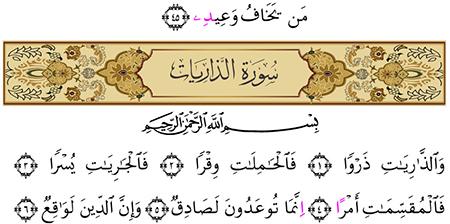 مَن يَخَافُ وَعِيدِ ۝٤٥
سُورَةُ الذَّارِيَاتِ
بِسْمِ ٱللَّهِ ٱلرَّحْمَٰنِ ٱلرَّحِيمِ
وَٱلذَّٰرِيَٰتِ ذَرْوًا ۝١ فَٱلْحَٰمِلَٰتِ وِقْرًا ۝٢ فَٱلْجَٰرِيَٰتِ يُسْرًا ۝٣
فَٱلْمُقَسِّمَٰتِ أَمْرًا ۝٤ إِنَّمَا تُوعَدُونَ لَصَادِقٌ ۝٥ وَإِنَّ ٱلدِّينَ لَوَٰقِعٌ ۝٦